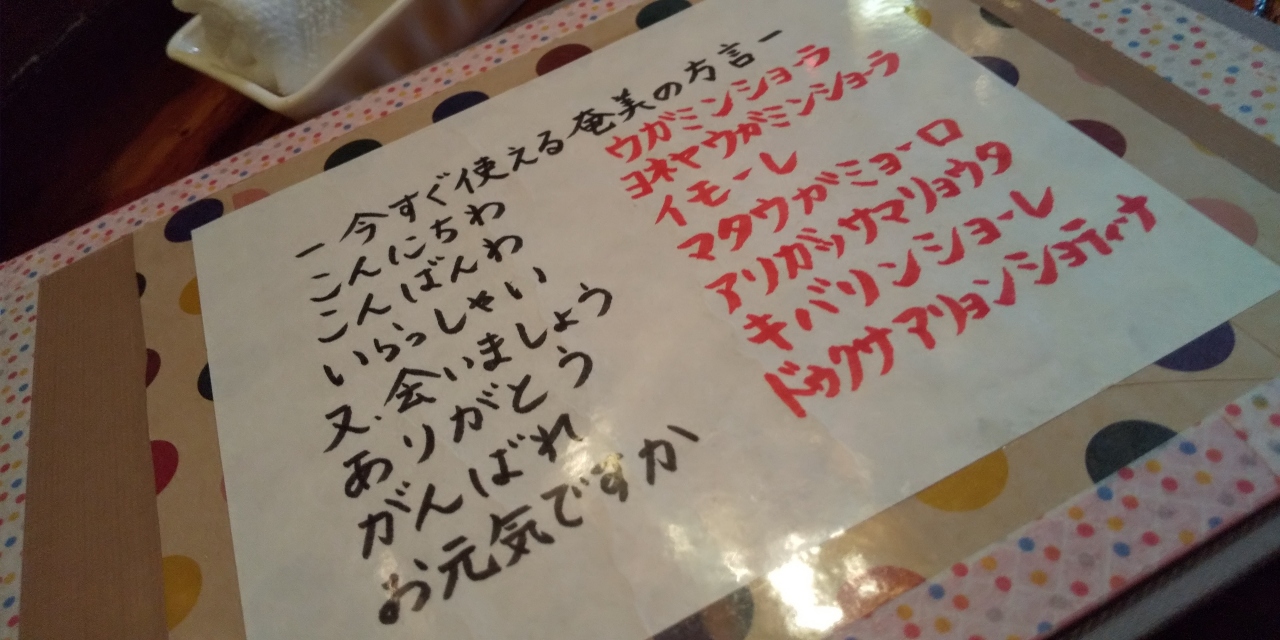 ー今すぐ使える奄美の方言ー
こんにちわ ウガミンショーラ
こんばんわ ヨネヤウガミンショーラ
いらっしゃい イモーレ
又、会いましょう マタウガミョーロ
ありがとう アリガッサマリョウタ
がんばれ キバリンショーレ
お元気ですか ドゥクサアリョンショティナ